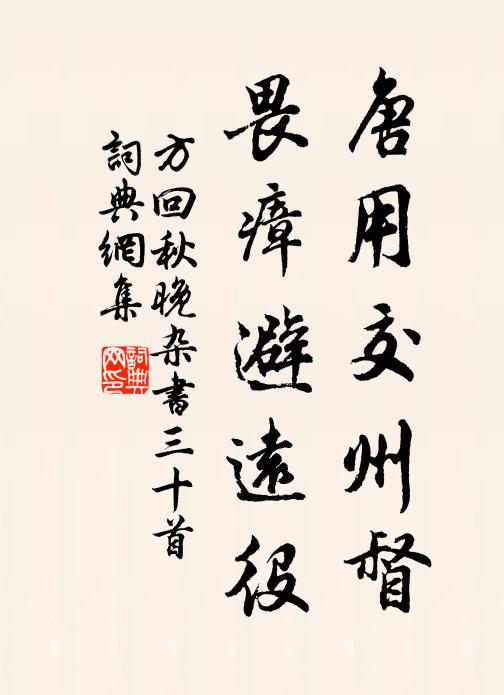 唐用交州督
畏瘴避遠役
方回秋晚杂書三十首
詞典網集
詞典网印